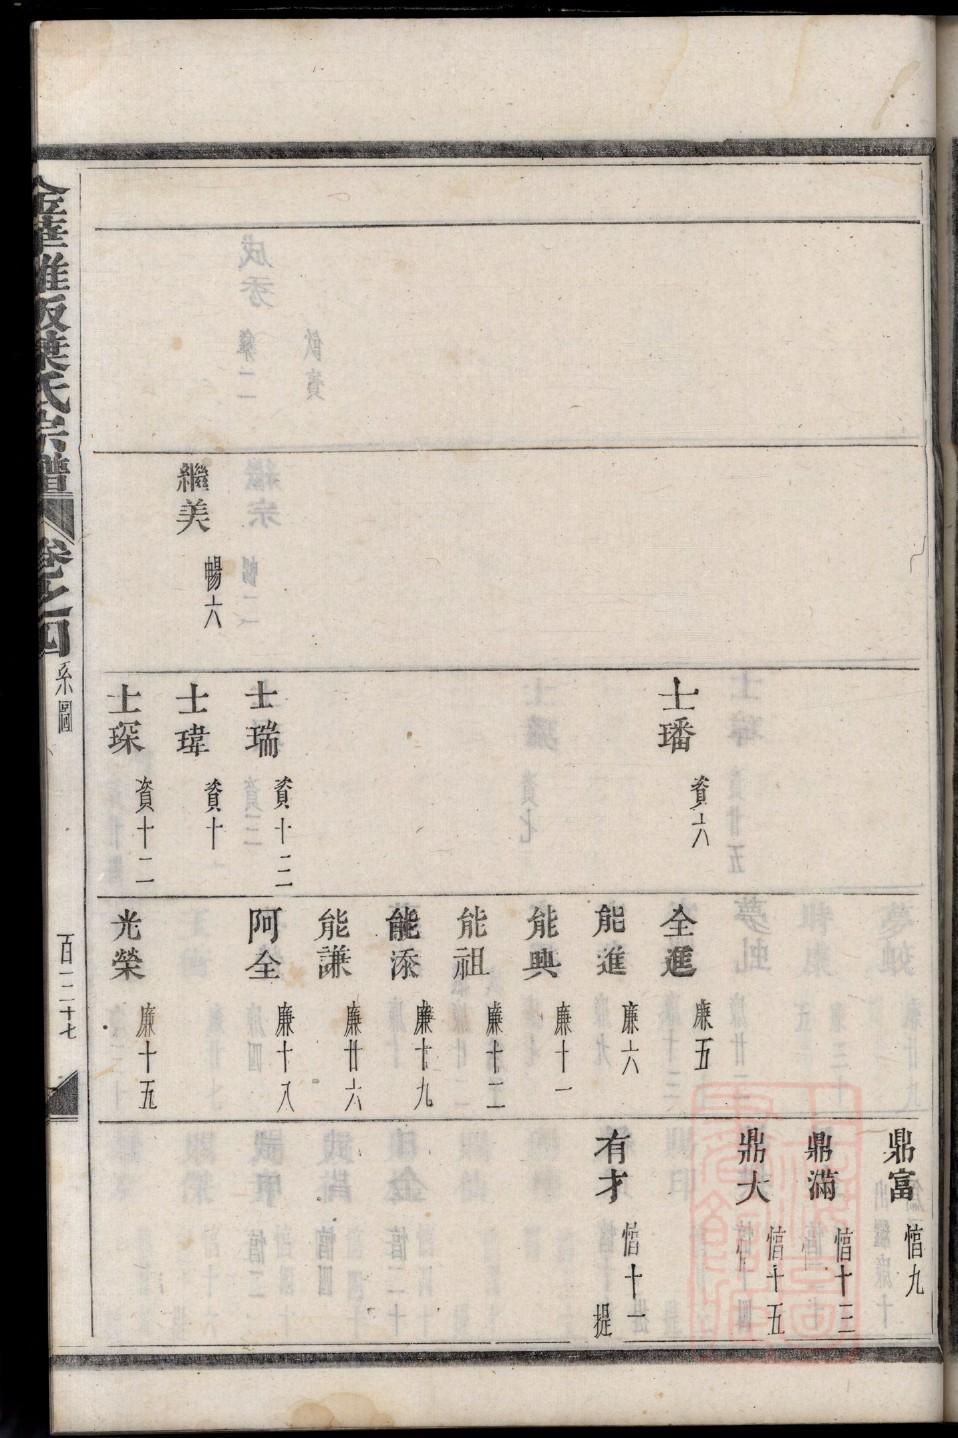 繼美 暢六
士璠 資六
士瑞 資十三
士瑋 資十
士琛 資十二
全進 廉五
能進 廉六
能興 廉十一
能祖 廉十二
能添 廉十九
能謙 廉廿六
阿全 廉十八
光榮 廉十五
鼎富 愭九
鼎滿 愭十三
鼎大 愭十五
有才 愭十一 提
金華雅畈葉氏宗譜 卷之四 系圖 百二十七